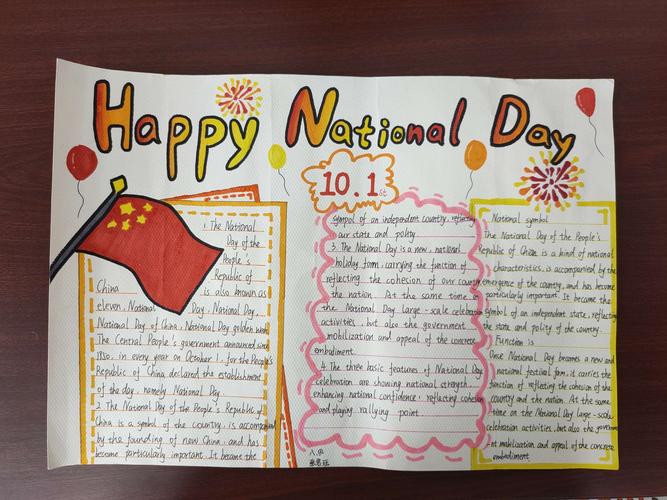 Happy National Day
10.1st
1. The National
Day of the
People's
Republic of
China is also known as
eleven, National Day, National Day,
National Day of China, National Day golden week.
The Central People's government announced since
1950, in every year on October 1, for the People's
Republic of China declared the establishment
of the day, namely National Day
2. The National Day of the People's Republic of
China is a symbol of the country, is accompanied
by the founding of new China, and has
become particularly important. It became the
symbol of an independent country, reflecting
our state and polity.
3. The National Day is a new, national
holiday form, carrying the function of
reflecting the cohesion of our country,
the nation. At the same time on
the National Day large-scale celebration
activities, but also the government
mobilization and appeal of the concrete
embodiment.
4. The three basic features of National Day
celebration are showing national strength,
enhancing national confidence, reflecting cohesion
and playing rallying point.
National symbol
The National Day of the People's
Republic of China is a kind of national
characteristics, is accompanied by the
emergence of the country, and has become
particularly important. It became the
symbol of an independent state, reflecting
the state and polity of the country.
Function is
Once National Day becomes a new and
national festival form, it carries the
function of reflecting the cohesion of the
country and the nation. At the same
time on the National Day large-scale
celebration activities, but also the governm
ent mobilization and appeal of the concrete
embodiment